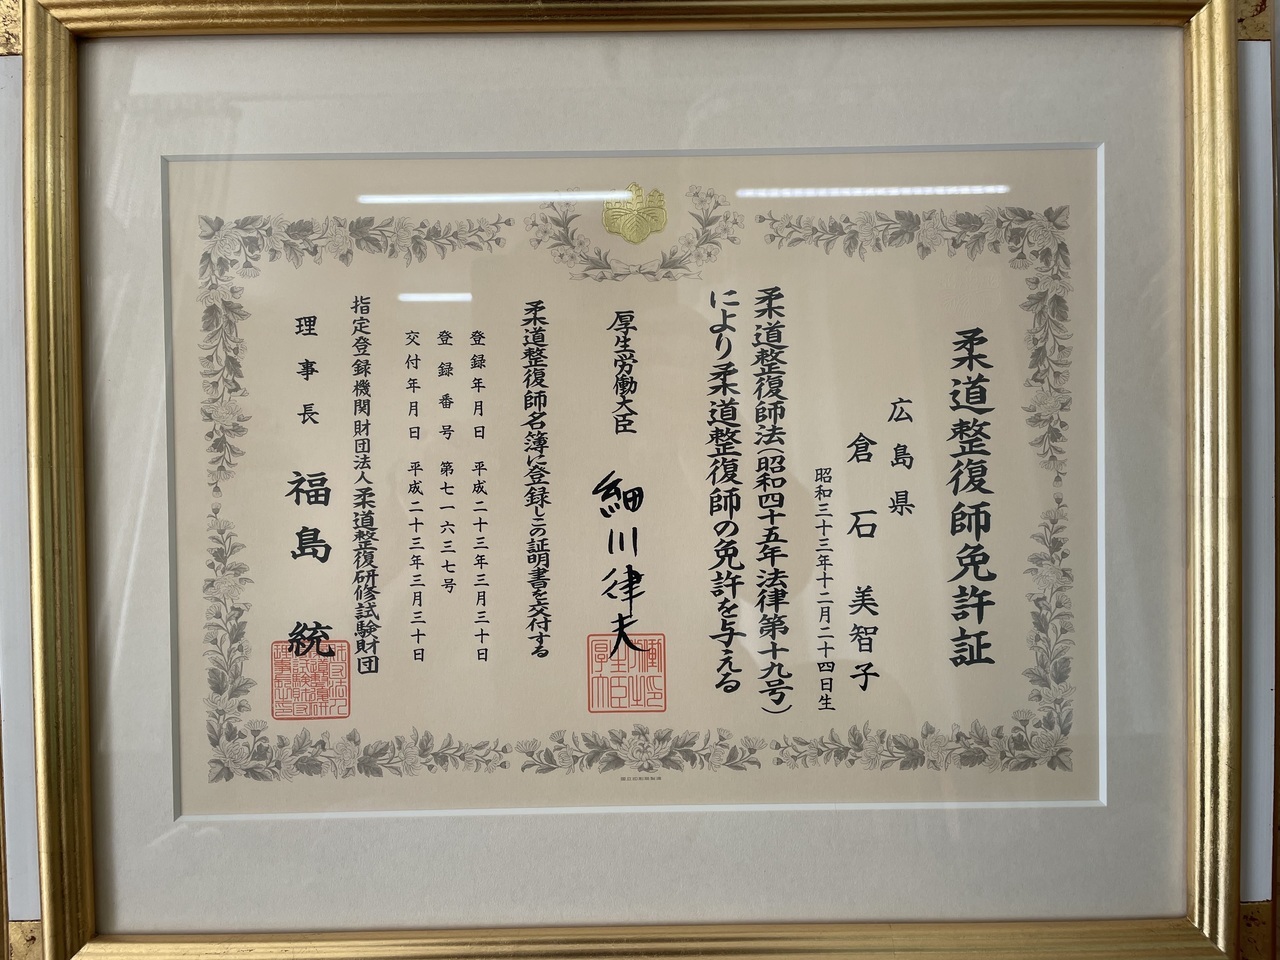 柔道整復師免許証
広島県
倉石 美智子
昭和三十三年十二月二十四日生
柔道整復師法（昭和四十五年法律第十九号）
により柔道整復師の免許を与える
厚生労働大臣 細川律夫
柔道整復師名簿に登録しこの証明書を交付する
登録年月日 平成二十三年三月三十日
登録番号 第七一六三七号
交付年月日 平成二十三年三月三十日
指定登録機関財団法人柔道整復研修試験財団
理事長 福島 統